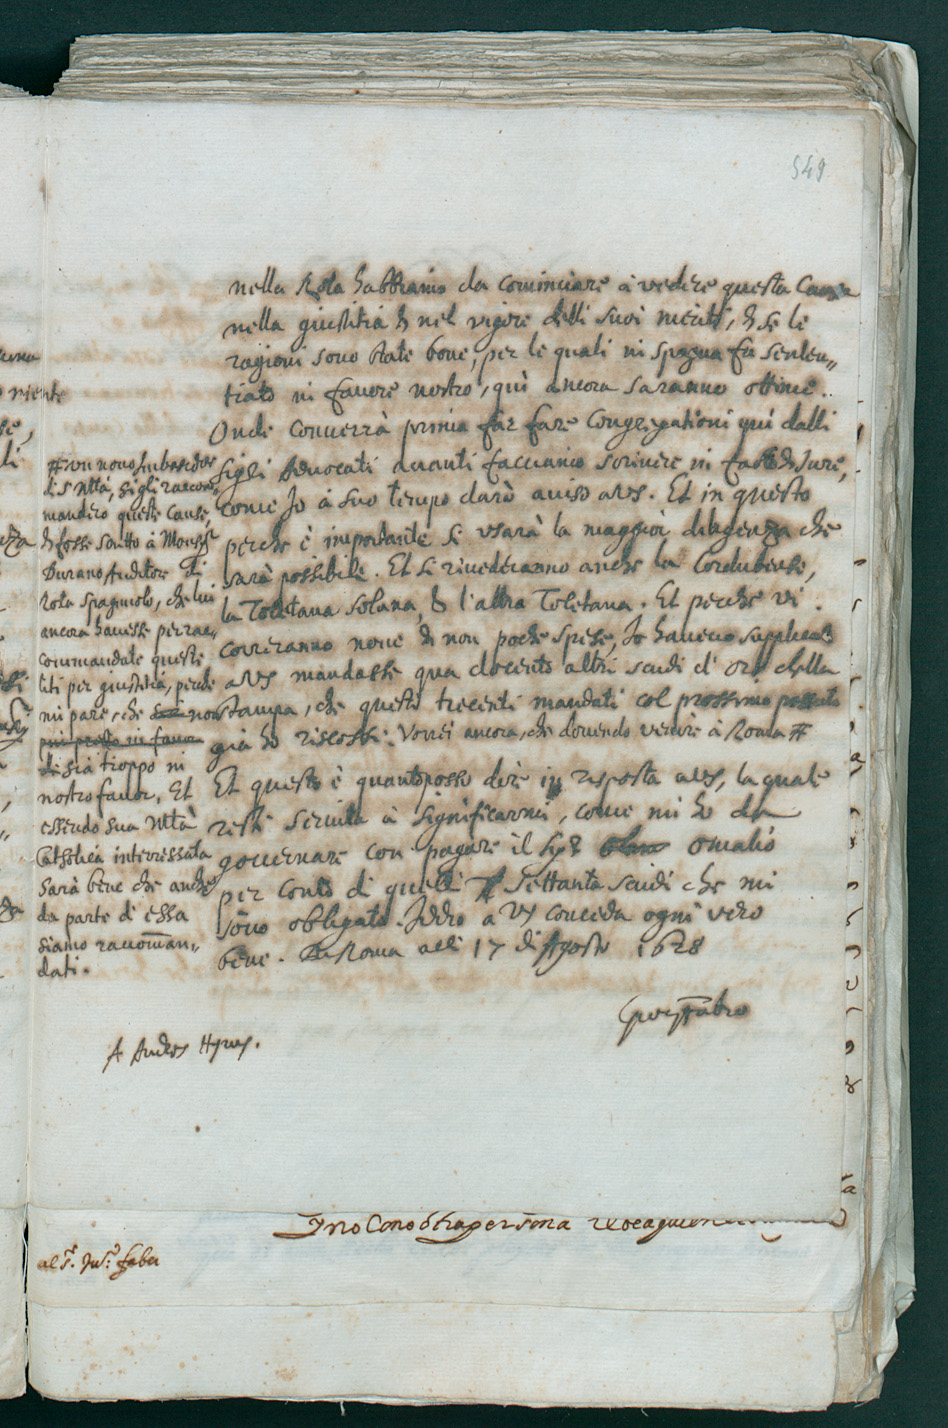 549
nella Rota habbiamo da cominciare à vedere questa Causa
nella giustitia & nel vigore delli suoi meriti, & se le
ragioni sono state bone, per le quali in Spagna fu senten„
tiato in favore nostro, quì ancora saranno ottime.
Onde converrà prima far fare Congregationi quì dalli
Sigri Advocati avanti facciamo scrivere in facto & Jure,
come Io à suo tempo darò aviso a VS. Et in questo
perche è importante si usarà la maggior diligenza che
sarà possibile. Et si rivederanno anche la Cordubense,
la Toletana solana, & l'altra Toletana. Et perche vi
correranno nove & non poche spese, Io havevo supplicato
a VS mandasse qua docento altri scudi d'oro della
stampa, che questi trecenti mandati col prossimo passato
già ho riscossi. Vorrei ancora, che dovendo venire à Roma #
Et questo è quanto posso dire in risposta a VS, la quale
resti servita à significarmi, come mi ho da
governare con pagare il Sigr Omalio
per conto di quelli settanta scudi che mi
sono obligato. Iddio a VS conceda ogni vero
bene. Da Roma alli 17 di Agosto 1628
# un novo Imbasciador
di S Mtà, si gli raccom„
mandero queste Cause,
& fosse scritto à Monsr
Durano Auditore di
Rota Spagnuolo, che lui
ancora havesse per rac„
commandate queste
liti per giustitia, perche
mi pare, che non
più presto in favor
di sia troppo in
nostro favor. Et
essendo sua Mtà
Catholica interessata
Sarà bene che anche
da parte di essa
siamo raccōman„
dati.
A Andres Hyus.
al Sr. Jus: faber